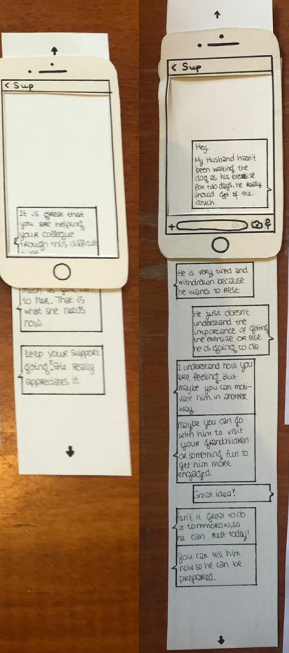 < Sup
It is great that
you are helping
your collegue
trough this difficult
to her. That is
what she needs
now.
Keep your support
going! She really
appreciates it.
< Sup
Hey,
My Husband hasn't
been walking the
dog as his exercise
for two days, he really
should get of the
couch.
+
He is very tired and
withdrawn because
he wants to rest.
He just doesn't
understand the
importance of getting
the exersize or else
he is going to die
I understand how you
are feeling but
maybe you can moti-
vate him in another
way.
Maybe you can go
with him to visit
your grandchildren
or something fun to
get him more
engaged.
Great idea!
Isn't it great to do
it tommorow, so
he can rest today!
You can tell him
now so he can be
prepared.